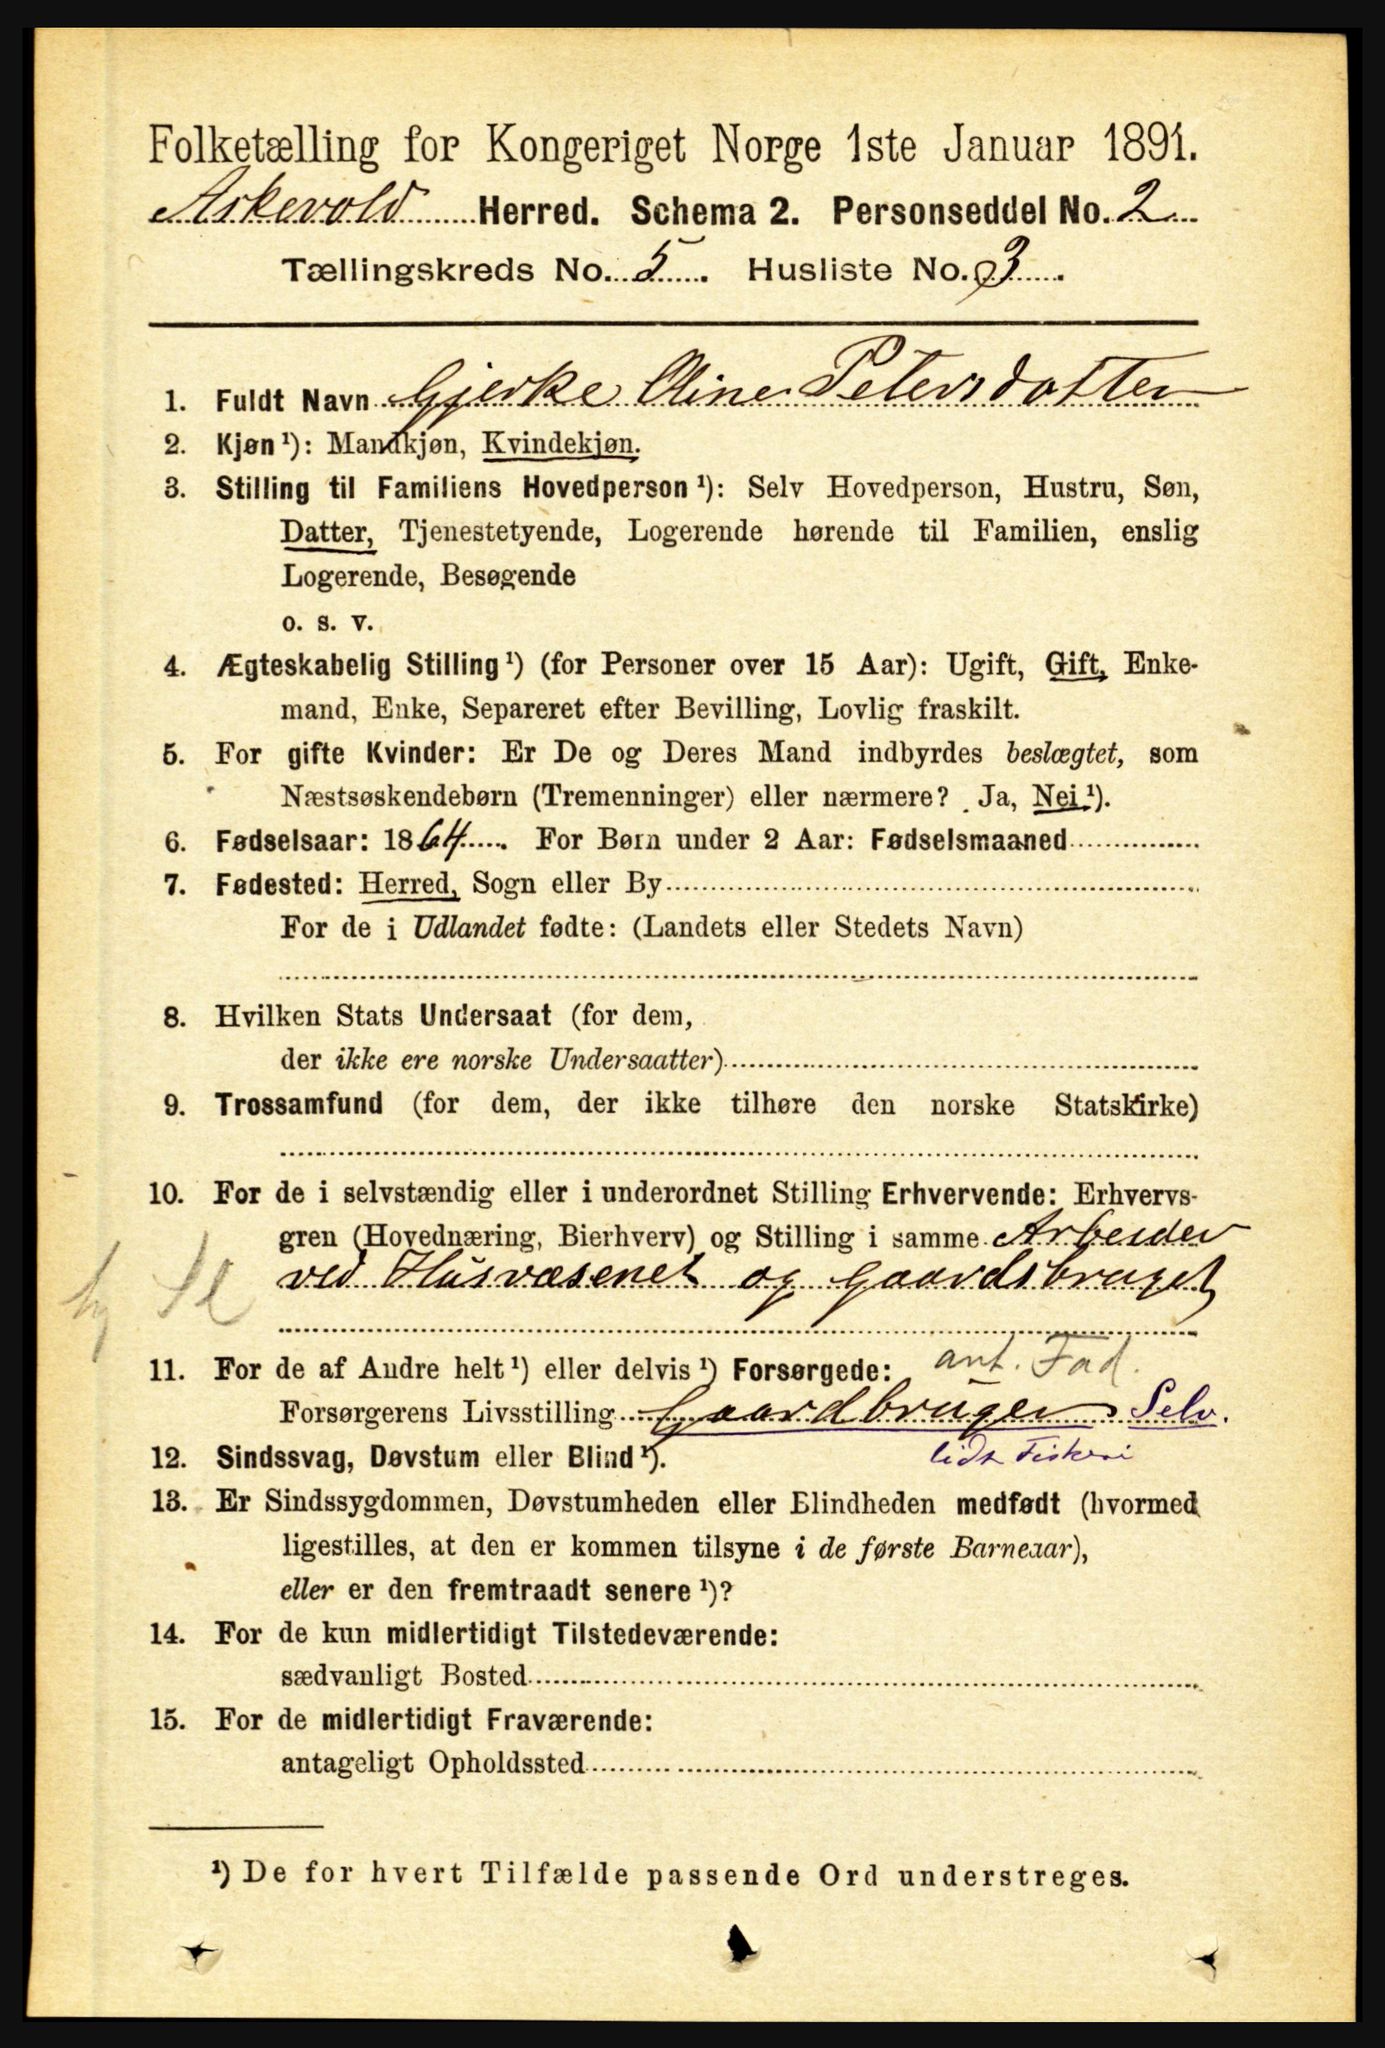 Folketælling for Kongeriget Norge 1ste Januar 1891.
Askevold Herred. Schema 2. Personseddel No. 2
Tællingskreds No. 5. Husliste No. 3.
1. Fuldt Navn Gjerke Oline Petersdatter
2. Kjøn ¹): Mandkjøn, Kvindekjøn.
3. Stilling til Familiens Hovedperson ¹): Selv Hovedperson, Hustru, Søn,
Datter, Tjenestetyende, Logerende hørende til Familien, enslig
Logerende, Besøgende
o. s. v.
4. Ægteskabelig Stilling ¹) (for Personer over 15 Aar): Ugift, Gift, Enke-
mand, Enke, Separeret efter Bevilling, Lovlig fraskilt.
5. For gifte Kvinder: Er De og Deres Mand indbyrdes beslægtet, som
Næstsøskendebørn (Tremenninger) eller nærmere? Ja, Nei ¹).
6. Fødselsaar: 1864. For Børn under 2 Aar: Fødselsmaaned
7. Fødested: Herred, Sogn eller By
For de i Udlandet fødte: (Landets eller Stedets Navn)
8. Hvilken Stats Undersaat (for dem,
der ikke ere norske Undersaatter)
9. Trossamfund (for dem, der ikke tilhøre den norske Statskirke)
10. For de i selvstændig eller i underordnet Stilling Erhvervende: Erhvervs-
gren (Hovednæring, Bierhverv) og Stilling i samme Arbeider
ved Husvæsenet og gaardsbruget
11. For de af Andre helt ¹) eller delvis ¹) Forsørgede: ant. Fad.
Forsørgerens Livsstilling Gaardbruger Selv.
lidt Fiskeri
12. Sindssvag, Døvstum eller Blind ¹).
13. Er Sindssygdommen, Døvstumheden eller Blindheden medfødt (hvormed
ligestilles, at den er kommen tilsyne i de første Barneaar),
eller er den fremtraadt senere ¹)?
14. For de kun midlertidigt Tilstedeværende:
sædvanligt Bosted
15. For de midlertidigt Fraværende:
antageligt Opholdssted
¹) De for hvert Tilfælde passende Ord understreges.